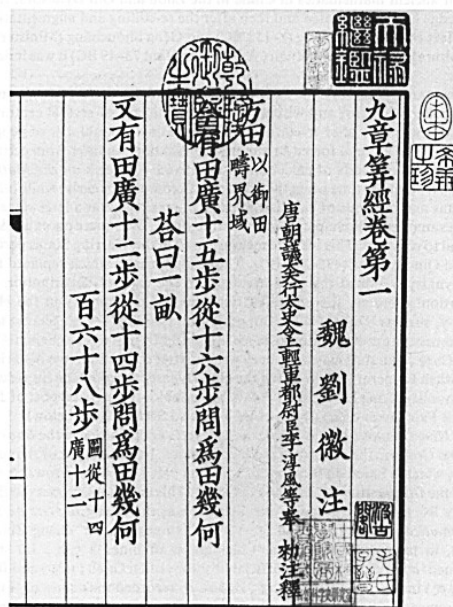 天祿繼鑑
乾隆御覽之寶
宋本
希世之珍
九章筭經卷第一
魏劉徽注
唐朝議大夫行太史令上輕車都尉臣李淳風等奉 勑注釋
方田以御田
疇界域
有田廣十五步從十六步問爲田幾何
荅曰一畝
又有田廣十二步從十四步問爲田幾何
百六十八步圖從十四
廣十二